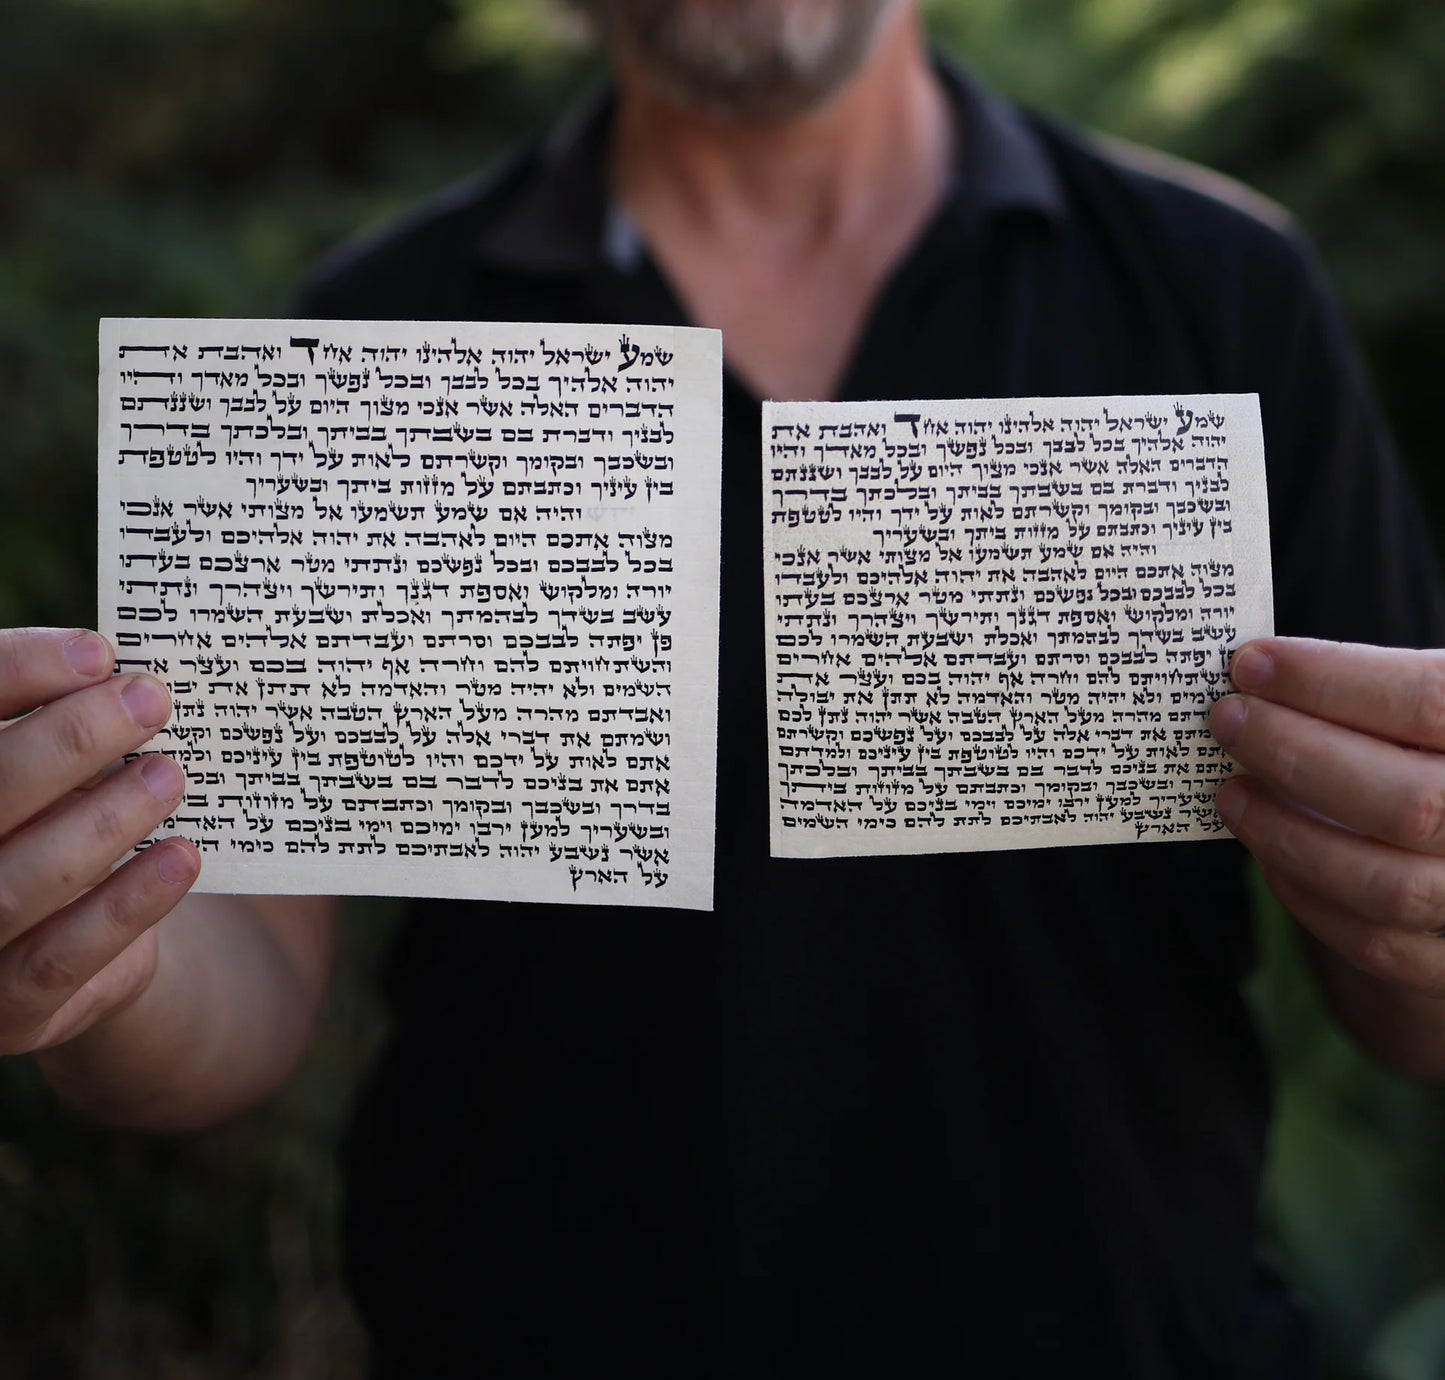 שמע ישראל יהוה אלהינו יהוה אחד ואהבת את
יהוה אלהיך בכל לבבך ובכל נפשך ובכל מאדך והיו
הדברים האלה אשר אנכי מצוך היום על לבבך ושננתם
לבניך ודברת בם בשבתך בביתך ובלכתך בדרך
ובשכבך ובקומך וקשרתם לאות על ידך והיו לטטפת
בין עיניך וכתבתם על מזזות ביתך ובשעריך
והיה אם שמע תשמעו אל מצותי אשר אנכי
מצוה אתכם היום לאהבה את יהוה אלהיכם ולעבדו
בכל לבבכם ובכל נפשכם ונתתי מטר ארצכם בעתו
יורה ומלקוש ואספת דגנך ותירשך ויצהרך ונתתי
עשב בשדך לבהמתך ואכלת ושבעת השמרו לכם
פן יפתה לבבכם וסרתם ועבדתם אלהים אחרים
והשתחויתם להם וחרה אף יהוה בכם ועצר את
השמים ולא יהיה מטר והאדמה לא תתן את
ואבדתם מהרה מעל הארץ הטבה אשר יהוה נתן
ושמתם את דברי אלה על לבבכם ועל נפשכם
אתם לאות על ידכם והיו לטוטפת בין עיניכם ולמדתם
אתם את בניכם לדבר בם בשבתך בביתך
בדרך ובשכבך ובקומך וכתבתם על מזוזות
ובשעריך למען ירבו ימיכם וימי בניכם על האדמה
אשר נשבע יהוה לאבתיכם לתת להם כימי
על הארץ
שמע ישראל יהוה אלהינו יהוה אחד ואהבת את
יהוה אלהיך בכל לבבך ובכל נפשך ובכל מאדך והיו
הדברים האלה אשר אנכי מצוך היום על לבבך ושננתם
לבניך ודברת בם בשבתך בביתך ובלכתך בדרך
ובשכבך ובקומך וקשרתם לאות על ידך והיו לטטפת
בין עיניך וכתבתם על מזזות ביתך ובשעריך
והיה אם שמע תשמעו אל מצותי אשר אנכי
מצוה אתכם היום לאהבה את יהוה אלהיכם ולעבדו
בכל לבבכם ובכל נפשכם ונתתי מטר ארצכם בעתו
יורה ומלקוש ואספת דגנך ותירשך ויצהרך ונתתי
עשב בשדך לבהמתך ואכלת ושבעת השמרו לכם
פן יפתה לבבכם וסרתם ועבדתם אלהים אחרים
והשתחויתם להם וחרה אף יהוה בכם ועצר את
השמים ולא יהיה מטר והאדמה לא תתן את יבולה
מהרה מעל הארץ הטבה אשר יהוה נתן לכם
את דברי אלה על לבבכם ועל נפשכם וקשרתם
אתם לאות על ידכם והיו לטוטפת בין עיניכם ולמדתם
אתם את בניכם לדבר בם בשבתך בביתך ובלכתך
בדרך ובשכבך ובקומך וכתבתם על מזוזות ביתך
ובשעריך למען ירבו ימיכם וימי בניכם על האדמה
אשר נשבע יהוה לאבתיכם לתת להם כימי השמים
על הארץ